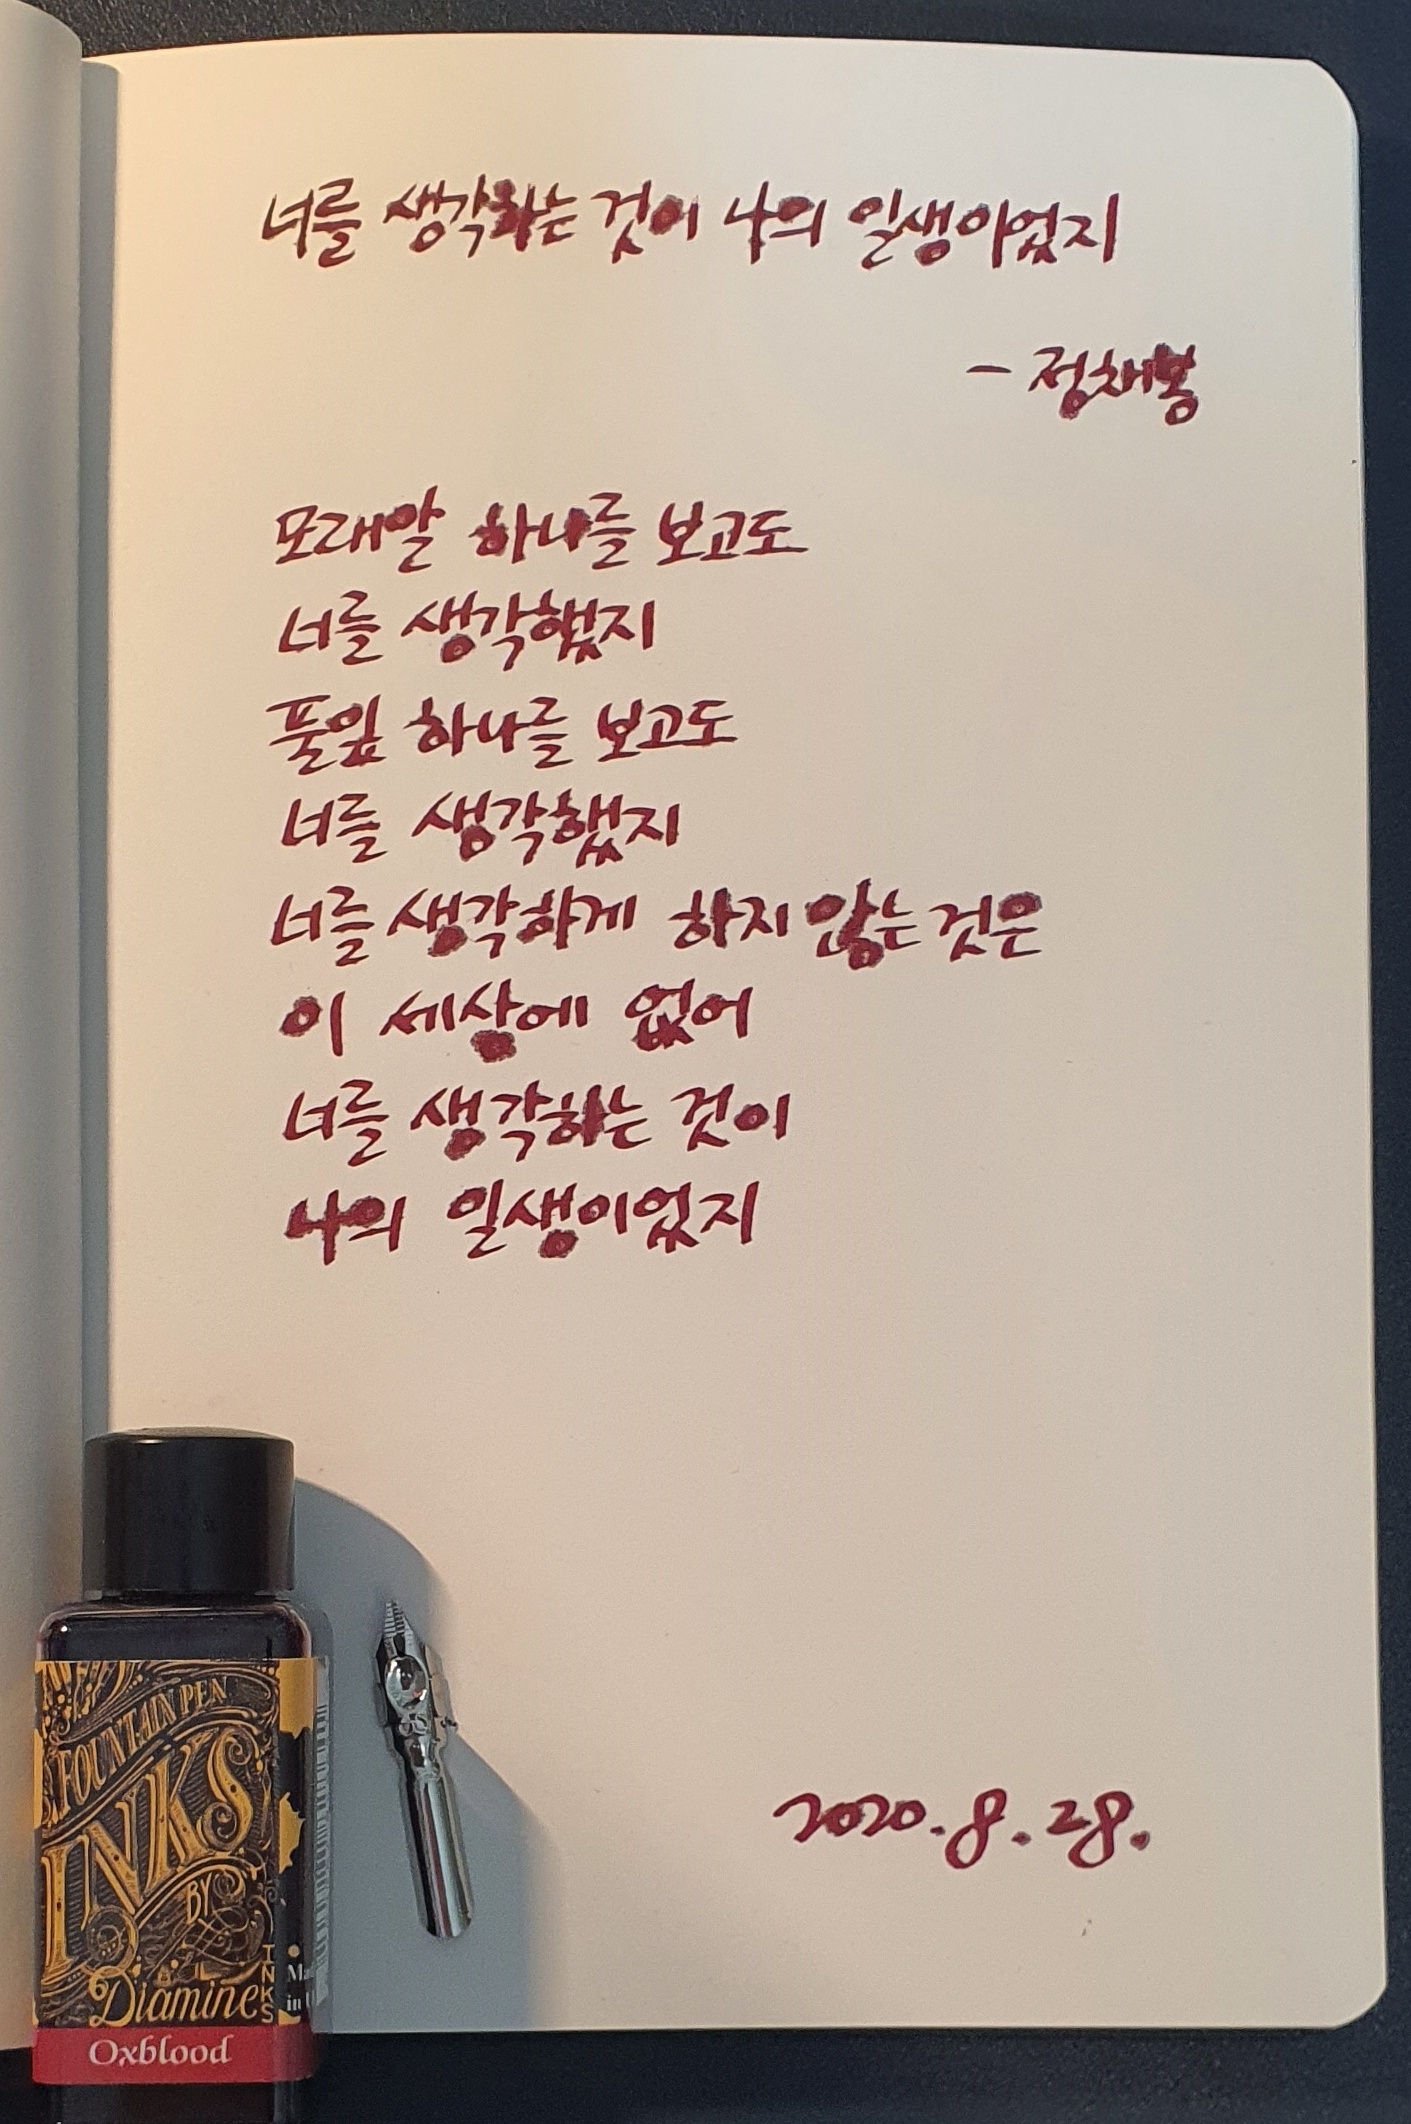 너를 생각하는 것이 나의 일생이었지
- 정채봉
모래알 하나를 보고도
너를 생각했지
풀잎 하나를 보고도
너를 생각했지
너를 생각하게 하지 않는 것은
이 세상에 없어
너를 생각하는 것이
나의 일생이었지
2020.8.28.
FOUNTAIN PEN
INKS
BY
Diamine
INKS
in
Oxblood